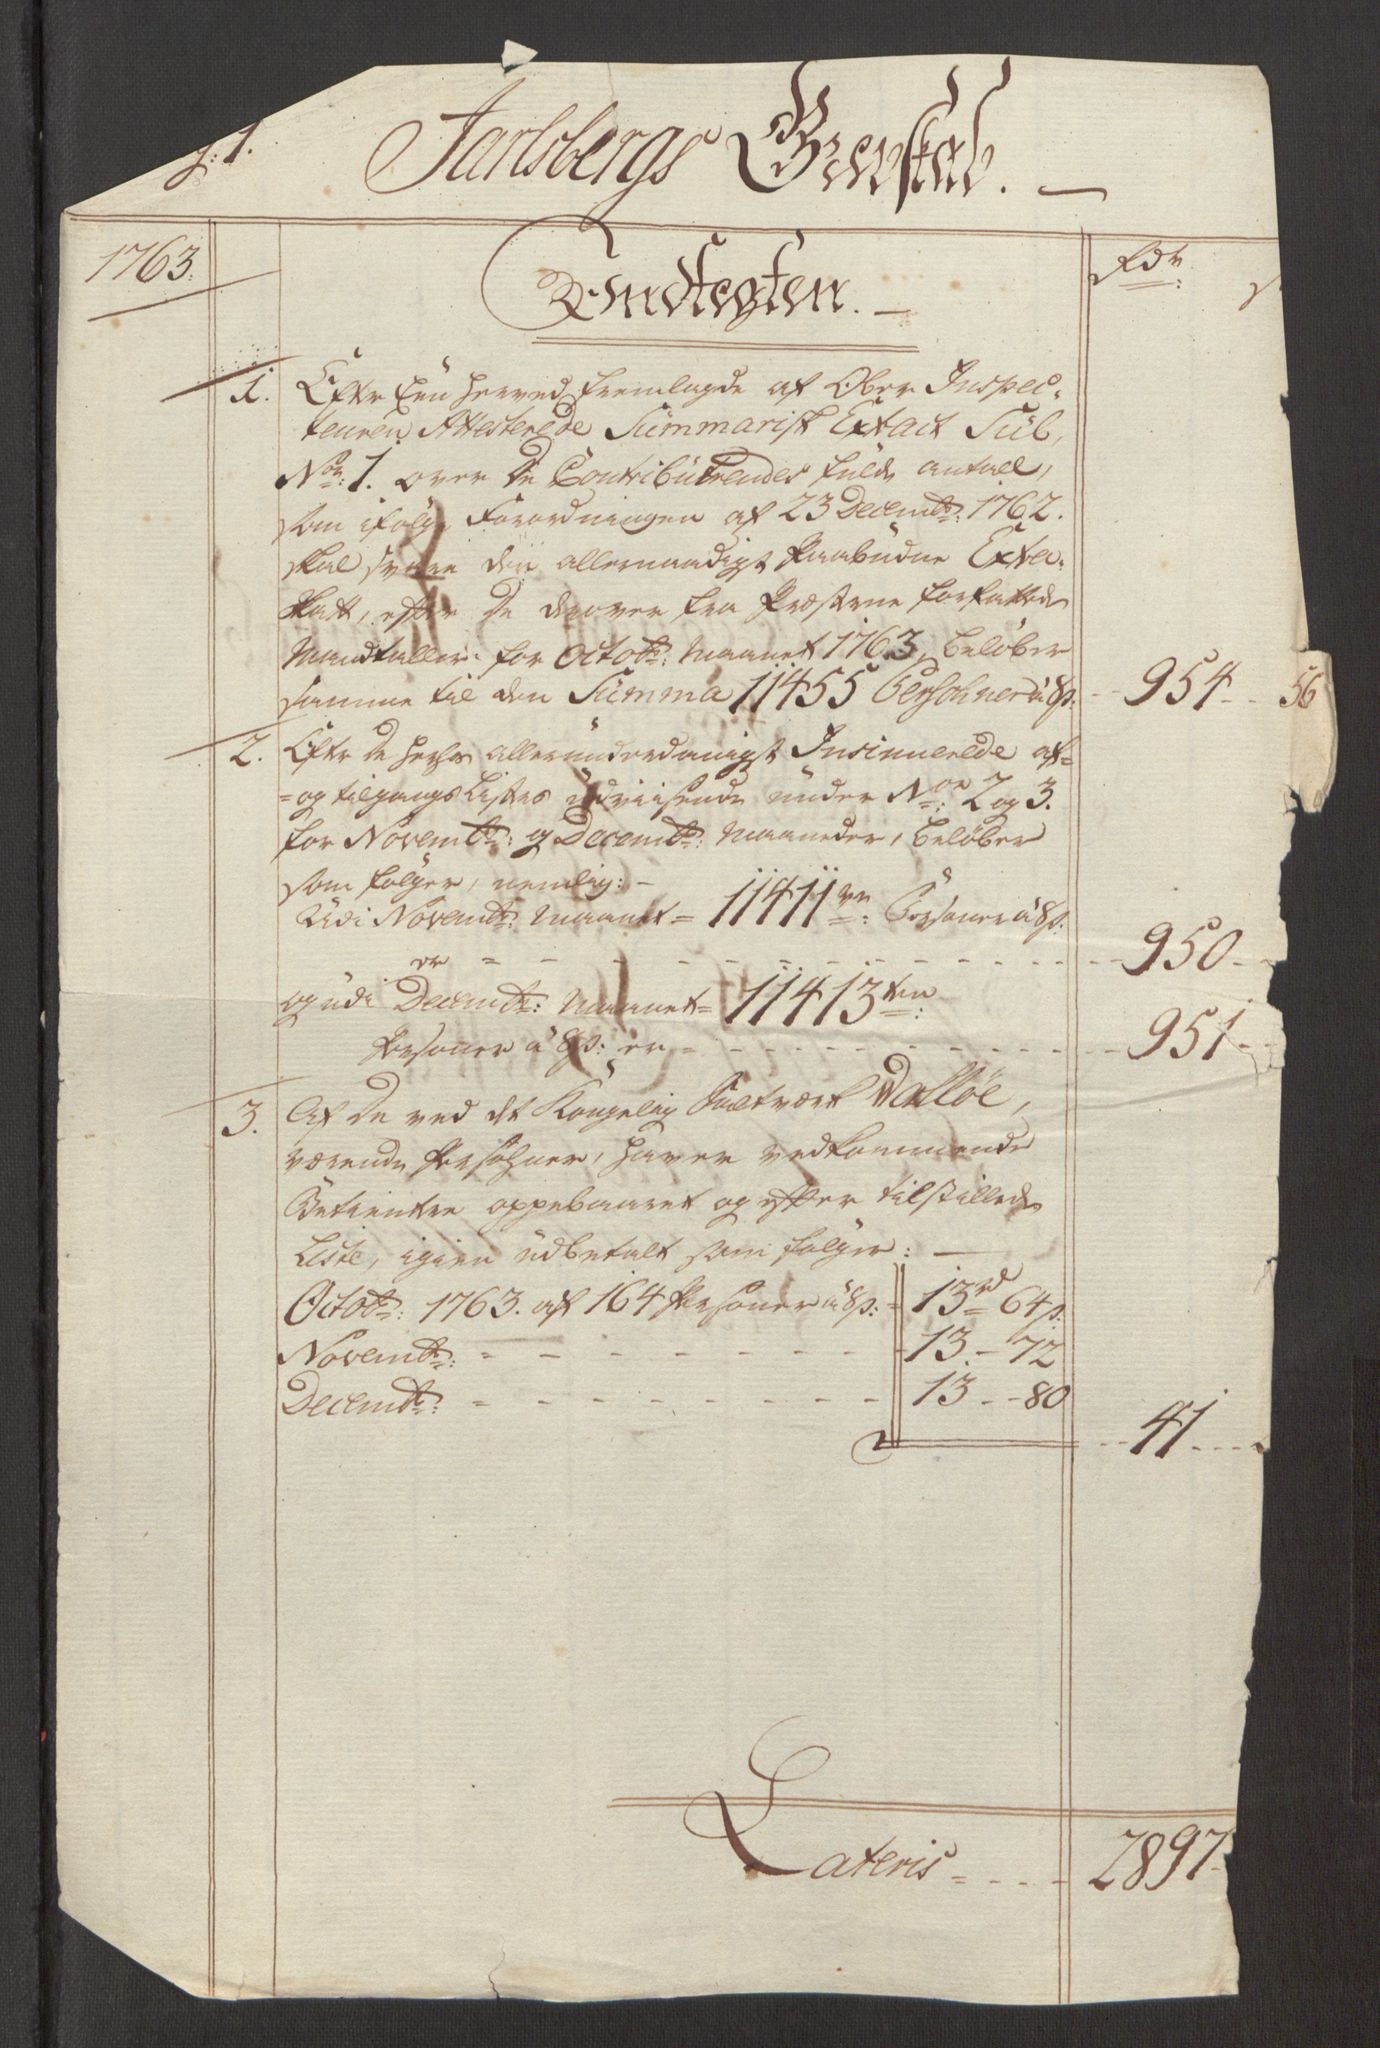 g: 1.
Jarlsbergs Grevskab.
1763.
Indtegten.
Rdr
1. Efter Een herved fremlagde af Ober Inspec-
teuren Attesterede Summarisk Extact Sub
No: 1. over De Contribuerendes fulde antall,
som ifølge Forordningen af 23 Decembr: 1762.
skal svare den allernaadigst paabudne Extra-
skatt, efter De derover fra Præsterne forfattede
Mandtaller for Octobr: Maanet 1763, beløber
samme til den Summa 11455 Persohner à 8s: 954 - 56
2. Efter De herhos allerunderdanigst Insinuerede af-
og tilgangs Listers udviisende under No: 2 og 3.
for Novembr: og Decembr: Maaneder, beløber
som følger, nemlig: -
Udi Novembr: Maanet = 11411ve: Persohner à 8s:
er - - - 950 -
og udi Decembr: Maanet = 11413ten:
Persohner à 8s: er - - - 951 -
3. Af De ved det Kongelig Saltværk Valløe,
værende Persohner, haver vedkommende
Betientere oppebaaret og efter tilstillede
Liste, igien udbetalt som følger: -
Octobr: 1763. af 164 Persohner à 8s: - 13rd 64s:
Novembr: - - - 13 - 72
Decembr: - - - 13 - 80
41 - - -
Lateris - - - 2897